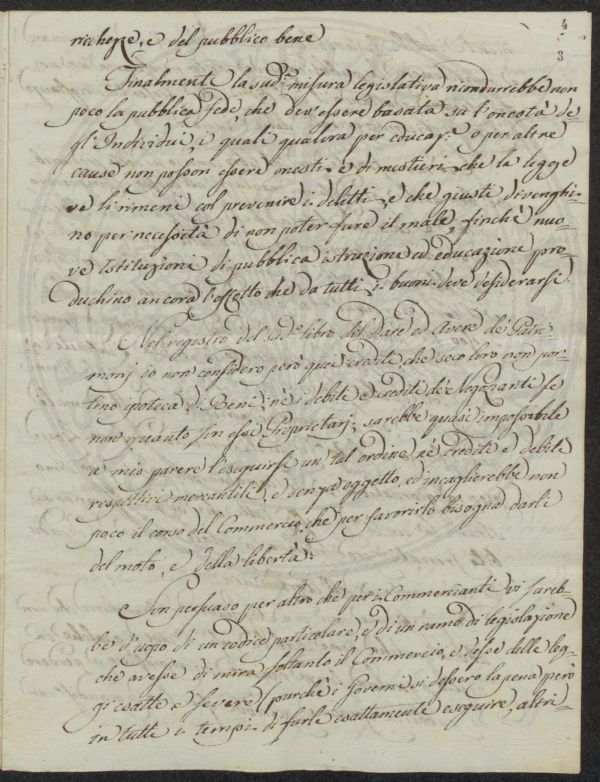 4
3
richezze, e del pubblico bene
Finalmente la sud.ª misura legislativa nondurrebbe non
poco la pubblica fede, che dev'essere basata su l'onestà de=
gl'Individui, i quali qualora per educaz.e o per altre
cause non posson essere onesti è di mestieri che la legge
ve li rimeni col prevenire i delitti, e che giusti divenghi=
no per necessità di non poter fare il male, finchè nuo=
ve Istituzioni di pubblica istruzione ed educazione pro=
duchino ancora l'effetto che da tutti i buoni deve desiderarsi.
Nel registro del sud.º libro del Dare ed Avere de' Patri=
monj io non considero però que' crediti, che seco loro non por=
tino ipoteca di Beni, nè i debiti e crediti de' Negozianti se
non quanto sin essi Proprietarj; sarebbe quasi impossibile
a mio parere l'eseguirsi un tal ordine nè crediti e debiti
respettivi mercantili, e senza oggetto, ed incaglierebbe non
poco il corso del Commercio, che per favorirlo bisogna darli
del moto, e della libertà.
Son persuaso per altro che per i Commercianti vi sareb=
be d'uopo di un codice particolare, e di un ramo di legislazione
che avesse di mira soltanto il Commercio, e desse delle leg=
gi esatte e severe (purchè i Governi si dessero la pena però
in tutti i tempi di farle esattamente eseguire, altri=